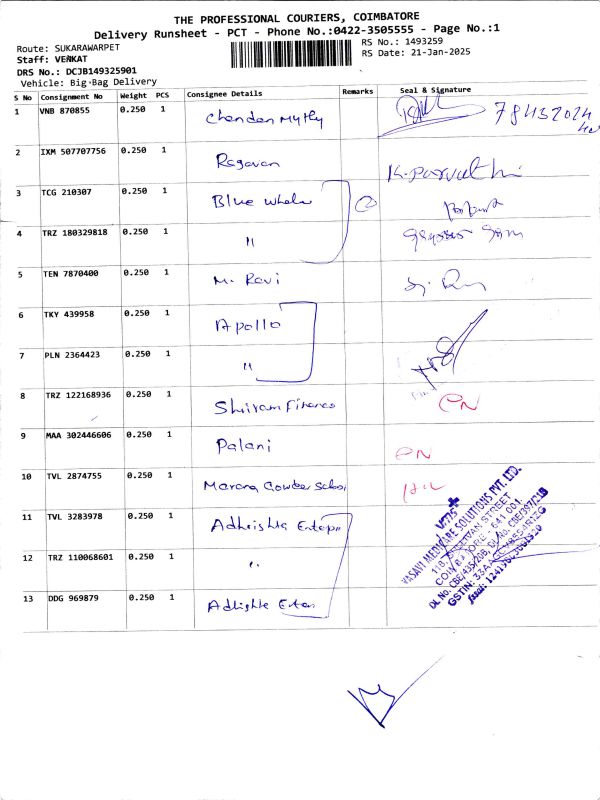 THE PROFESSIONAL COURIERS, COIMBATORE
Delivery Runsheet - PCT - Phone No.:0422-3505555 - Page No.:1
Route: SUKARAWARPET
RS No.: 1493259
Staff: VENKAT
RS Date: 21-Jan-2025
DRS No.: DCJB149325901
Vehicle: Big-Bag Delivery
S No Consignment No Weight PCS Consignee Details Remarks Seal & Signature
1 VNB 870855 0.250 1 Chandan 78432024
2 IXM 507707756 0.250 1 Ragavan K. Parvathi
3 TCG 210307 0.250 1 Blue whale
4 TRZ 180329818 0.250 1 "
5 TEN 7870400 0.250 1 M. Ravi
6 TKY 439958 0.250 1 Apollo
7 PLN 2364423 0.250 1 "
8 TRZ 122168936 0.250 1 Shriram Finance PN
9 MAA 302446606 0.250 1 Palani PN
10 TVL 2874755 0.250 1
11 TVL 3283978 0.250 1
12 TRZ 110068601 0.250 1 "
13 DDG 969879 0.250 1
VASAVI MEDICARE SOLUTIONS PVT. LTD.
118, SULLIVAN STREET
COIMBATORE - 641 001.